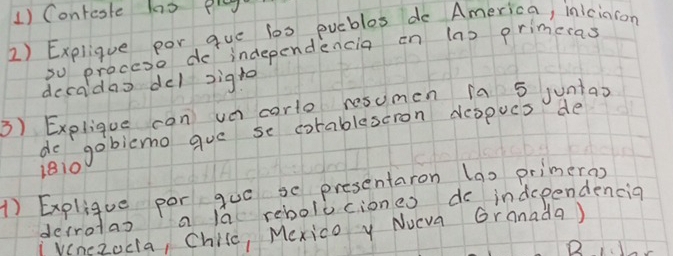 1) Conteste las
2) Explique por que los pueblos de America, inicinron
su proceso de independencia en las primeras
decadas del siglo
3) Explique con un corto resumen la 5 juntas
de gobierno que se establescron despues de
1810
1) Explique por que se presentaron las primeras
derrotas a la reboluciones de independencia
(Venezuela, Chile, Mexico y Nueva Granada)